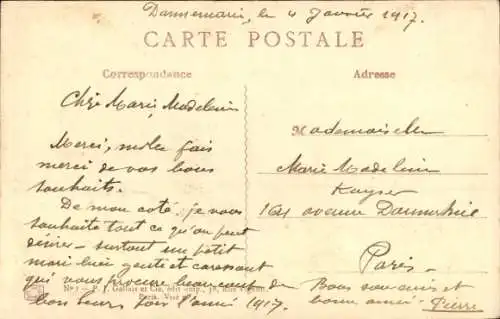 Dannemarie, le 4 Janvier 1917.
CARTE POSTALE
Correspondance
Adresse
Chère Marie Madeleine
Merci, mille fois
merci de vos bons
souhaits.
De mon coté, je vous
souhaite tout ce qu'on peut
désirer - surtout un petit
mari bien gentil et caressant
qui vous procure beaucoup de
bon heur pour l'année 1917.
Bons souvenirs et
bonne année. Pierre
Mademoiselle
Marie Madeleine
Kayser
164 avenue
Paris
No 7. - P. J. Gallais et Cie, édit.-imp., 38, rue
Paris. Visé